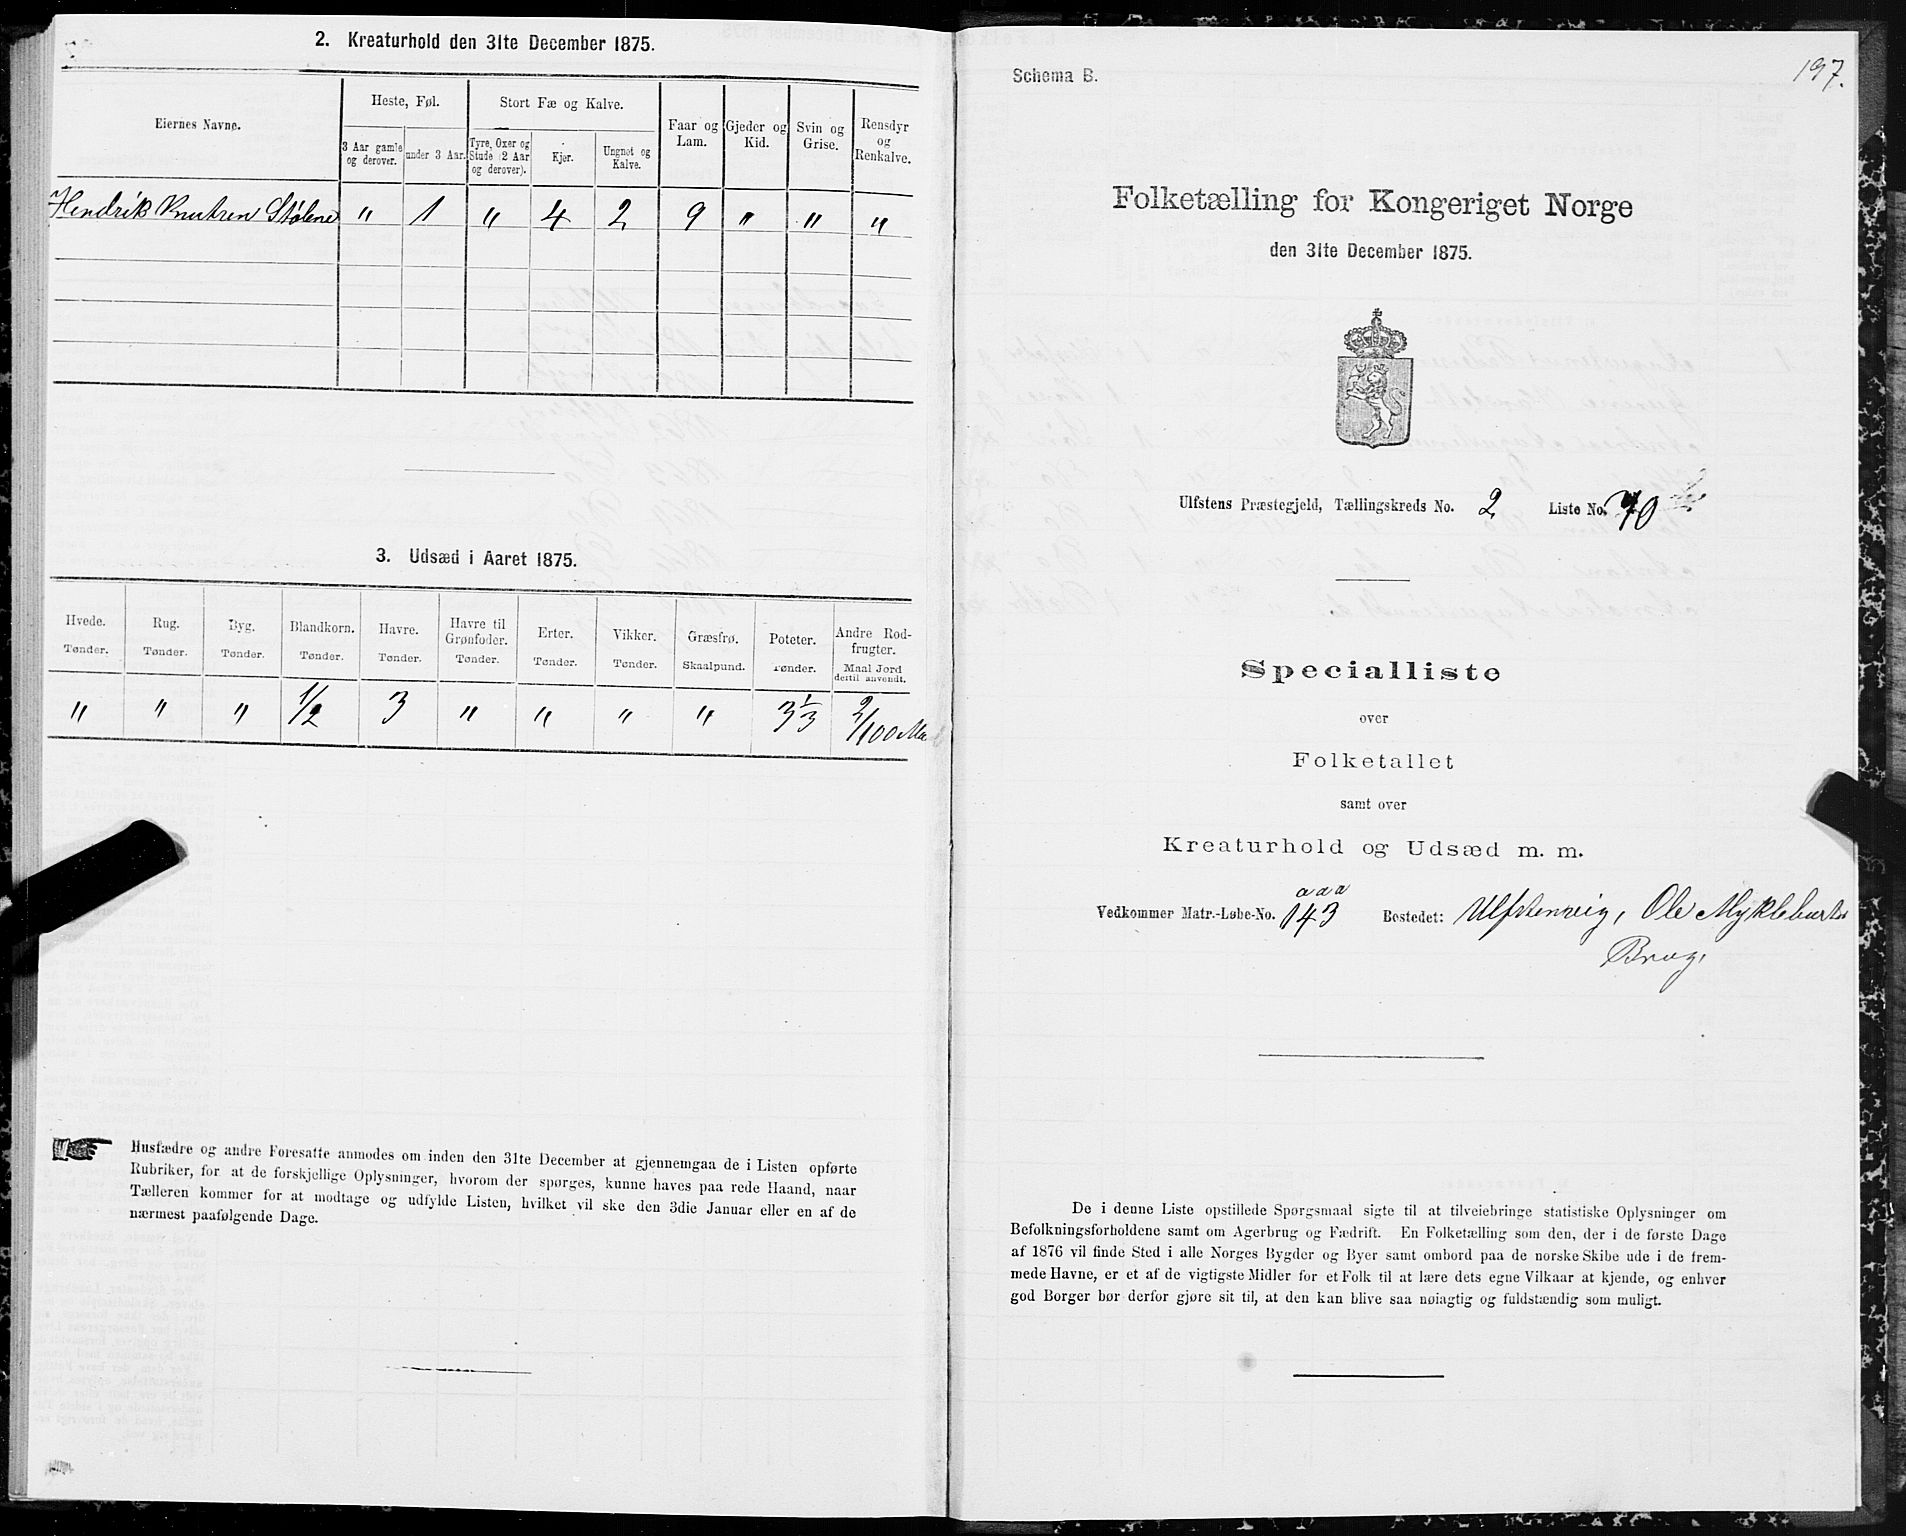 2. Kreaturhold den 31te December 1875.
Eiernes Navne.
Heste, Føl.
Stort Fæ og Kalve.
Faar og Lam.
Gjeder og Kid.
Svin og Grise.
Rensdyr og Renkalve.
3 Aar gamle og derover.
under 3 Aar.
Tyre, Oxer og Stude (2 Aar og derover).
Kjør.
Ungnøt og Kalve.
Hendrik Knutsen Stølene " 1 " 4 2 9 " " "
3. Udsæd i Aaret 1875.
Hvede. Rug. Byg. Blandkorn. Havre. Havre til Grønfoder. Erter. Vikker. Græsfrø. Poteter. Andre Rodfrugter.
Tønder. Tønder. Tønder. Tønder. Tønder. Tønder. Tønder. Tønder. Skaalpund. Tønder. Maal Jord dertil anvendt.
" " " 1/2 3 " " " " 3 1/3 2/100 Ma
Husfædre og andre Foresatte anmodes om inden den 31te December at gjennemgaa de i Listen opførte
Rubriker, for at de forskjellige Oplysninger, hvorom der spørges, kunne haves paa rede Haand, naar
Tælleren kommer for at modtage og udfylde Listen, hvilket vil ske den 3die Januar eller en af de
nærmest paafølgende Dage.
197.
Schema B.
Folketælling for Kongeriget Norge
den 31te December 1875.
Ulfstens Præstegjeld, Tællingskreds No. 2 Liste No. 70
Specialliste
over
Folketallet
samt over
Kreaturhold og Udsæd m. m.
aaa
Vedkommer Matr.-Løbe-No. 143 Bostedet: Ulfstenveig, Ole Myklebusts
Brug,
De i denne Liste opstillede Spørgsmaal sigte til at tilveiebringe statistiske Oplysninger om
Befolkningsforholdene samt om Agerbrug og Fædrift. En Folketælling som den, der i de første Dage
af 1876 vil finde Sted i alle Norges Bygder og Byer samt ombord paa de norske Skibe ude i de frem-
mede Havne, er et af de vigtigste Midler for et Folk til at lære dets egne Vilkaar at kjende, og enhver
god Borger bør derfor gjøre sit til, at den kan blive saa nøiagtig og fuldstændig som muligt.